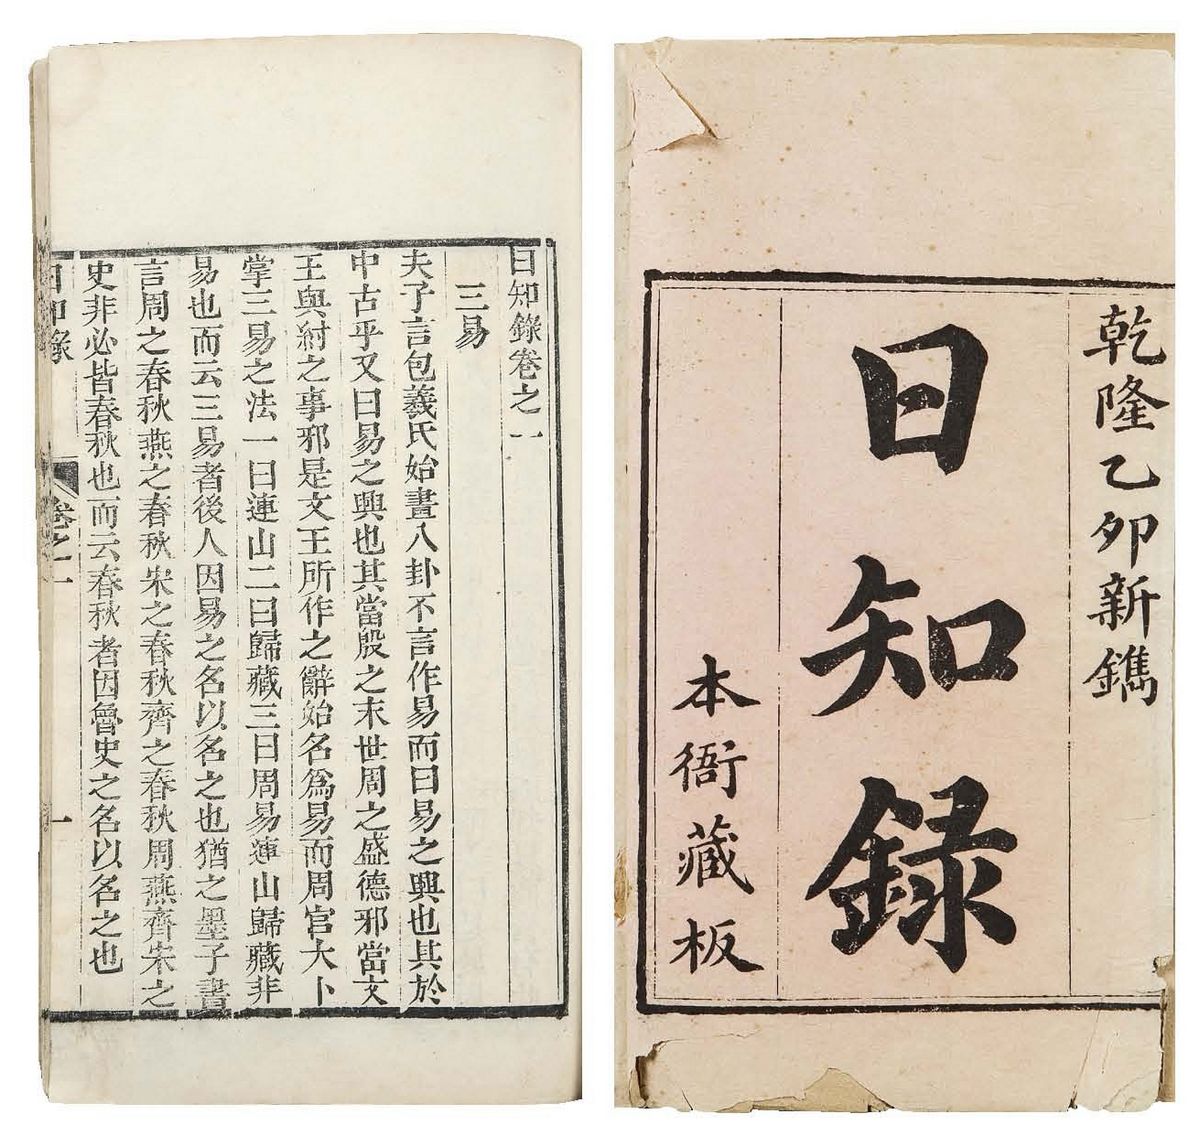 乾隆乙卯新鐫
日知録
本衙藏板
日知錄卷之一
三易
夫子言包羲氏始畫八卦不言作易而曰易之興也其於
中古乎又曰易之興也其當殷之末世周之盛德邪當文
王與紂之事邪是文王所作之辭始名爲易而周官大卜
掌三易之法一曰連山二曰歸藏三曰周易連山歸藏非
易也而云三易者後人因易之名以名之也猶之墨子書
言周之春秋燕之春秋宋之春秋齊之春秋周燕齊宋之
史非必皆春秋也而云春秋者因魯史之名以名之也
日知錄 卷之一 一